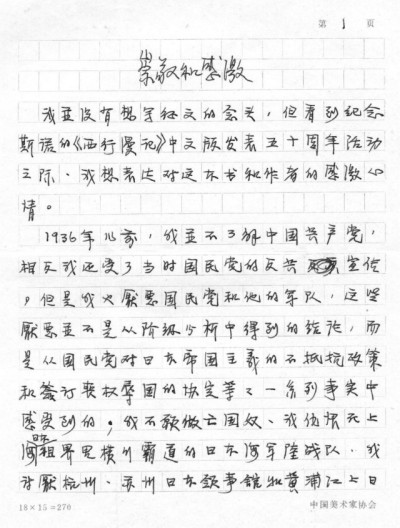 第 1 页
崇敬和感激
我并没有想写征文的念头，但看到纪念
斯诺的《西行漫记》中文版发表五十周年活动
之际、我想表达对这本书和作者的感激心
情。
1936年以前，我并不了解中国共产党，
相反我还受了当时国民党的反共宣传
，但是我也厭恶国民党和他的军队，这些
厭恶并不是从阶级分析中得到的结论，而
是从国民党对日本帝国主义的不抵抗政策
和签订丧权辱国的协定等等一系列事实中
感受到的。我不愿做亡国奴、我仇恨在上
海租界里横行霸道的日本海军陆战队、我
讨厭杭州、苏州日本领事馆和黄浦江上日
18×15=270
中国美术家协会